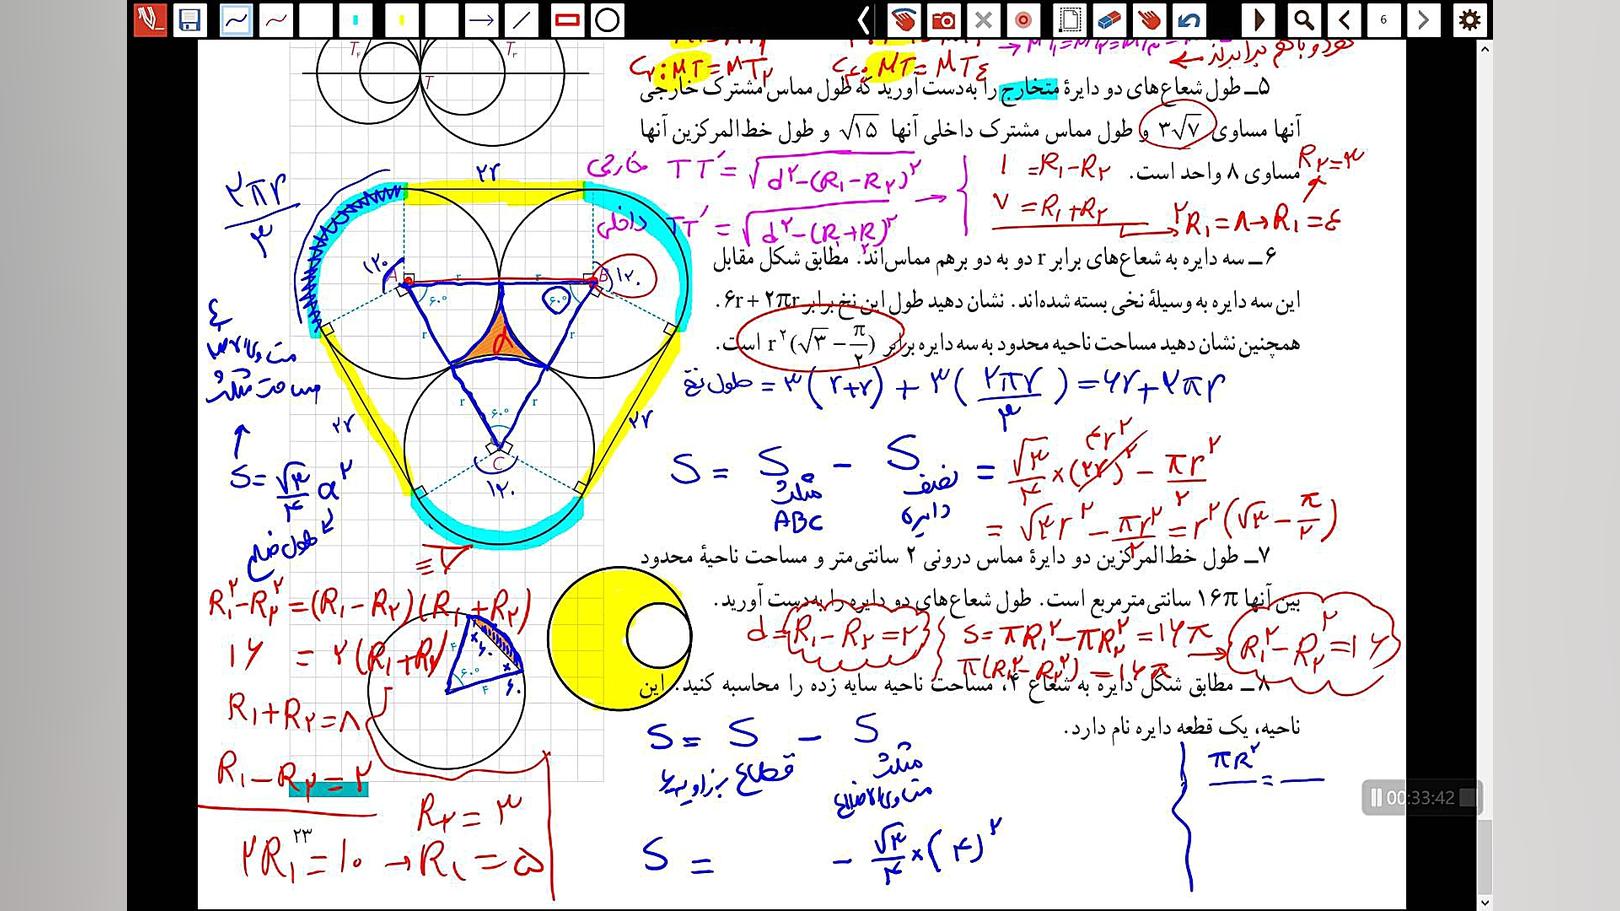 6
T₂ T₁
T
C₂: MT = MT₂ C₄: MT = MT₄
۵ــ طول شعاع‌های دو دایرهٔ متخارج را به‌دست آورید که طول مماس مشترک خارجی
آنها مساوی ۳√۷ و طول مماس مشترک داخلی آنها √۱۵ و طول خط‌المرکزین آنها
مساوی ۸ واحد است.
خارجی TT′ = √(d² − (R₁ − R₂)²)
داخلی TT′ = √(d² − (R + R)²)
۱ = R₁ − R₂
۷ = R₁ + R₂
۲R₁ = ۸ → R₁ = ۴
R₂ = ۳
۶ــ سه دایره به شعاع‌های برابر r دو به دو برهم مماس‌اند. مطابق شکل مقابل
این سه دایره به وسیلهٔ نخی بسته شده‌اند. نشان دهید طول این نخ برابر ۶r + ۲πr.
همچنین نشان دهید مساحت ناحیه محدود به سه دایره برابر r²(√۳ − π/۲) است.
طول نخ = ۳(r+r) + ۳(۲πr/۳) = ۶r + ۲πr
S = S مثلث ABC − S نصف دایره = √۳/۴ × (۲r)² − πr²/۲
۴r²
= √۳r² − πr²/۲ = r²(√۳ − π/۲)
۲πr/۳
۲r
۱۲۰ A r r B ۱۲۰
۶۰° ۶۰°
r r
r r
۶۰°
C
۱۲۰
۲r ۲r
S = √۳/۴ a²
طول ضلع
۷ــ طول خط‌المرکزین دو دایرهٔ مماس درونی ۲ سانتی‌متر و مساحت ناحیهٔ محدود
بین آنها ۱۶π سانتی‌مترمربع است. طول شعاع‌های دو دایره را به‌دست آورید.
d = R₁ − R₂ = ۲
S = πR₁² − πR₂² = ۱۶π
π(R₁² − R₂²) = ۱۶π → R₁² − R₂² = ۱۶
R₁² − R₂² = (R₁ − R₂)(R₁ + R₂)
۱۶ = ۲(R₁ + R₂)
R₁ + R₂ = ۸
R₁ − R₂ = ۲
۲R₁ = ۱۰ → R₁ = ۵
R₂ = ۳
۸ــ مطابق شکل دایره به شعاع ۴، مساحت ناحیه سایه زده را محاسبه کنید. این
ناحیه، یک قطعه دایره نام دارد.
۴ ۶۰° ۴
۶۰ ۶۰
S = S قطاع بزاویه ۶۰ − S مثلث متساوی‌الاضلاع
S = − √۳/۴ × (۴)²
πR² =
۲۳
00:33:42